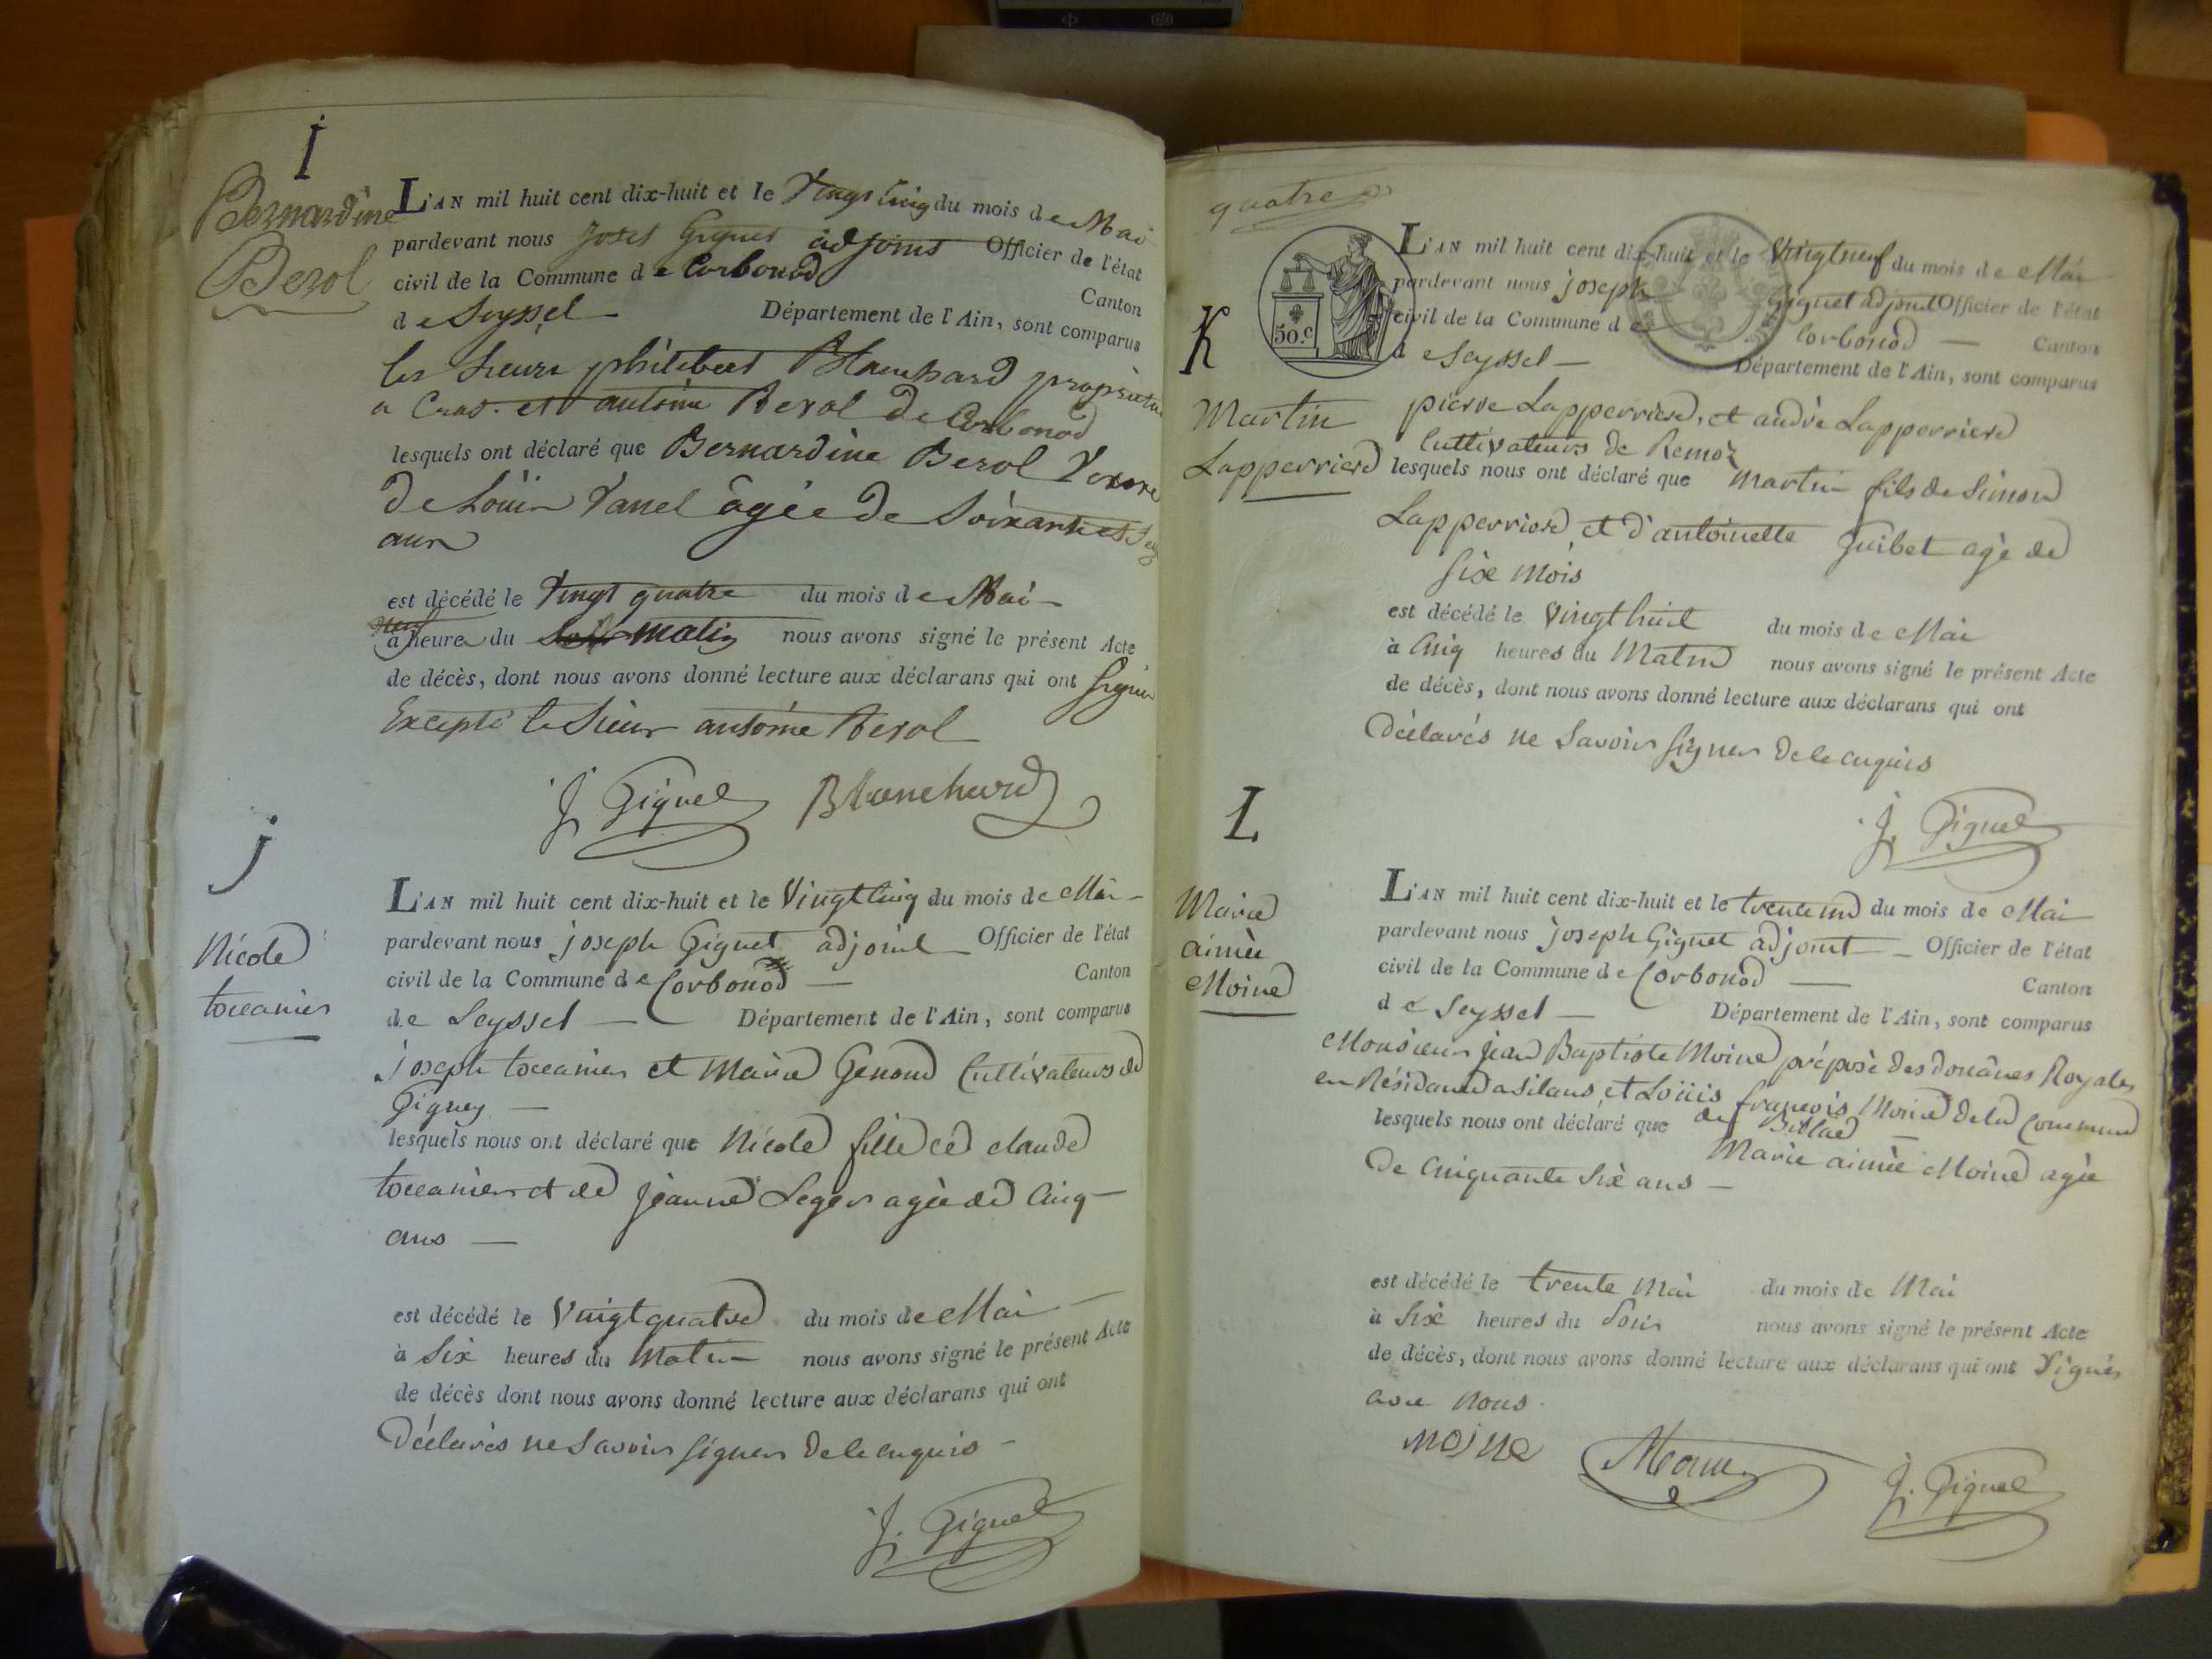 I
Bernardine
Berol
L'AN mil huit cent dix-huit et le Vingt Cinq du mois de Mai
pardevant nous Josep Giguet adjoint Officier de l'état
civil de la Commune de Corbonod Canton
de Seyssel Département de l'Ain, sont comparus
les Sieurs philibert Blanchard propriétai
a Cras. et antoine Berol de Corbonod
lesquels ont déclaré que Bernardine Berol Veuve
de Loüis Vanel âgée de Soixante et
ans
est décédé le Vingt quatre du mois de Mai
neuf
à heure du matin nous avons signé le présent Acte
de décès, dont nous avons donné lecture aux déclarans qui ont signer
Excepté le Sieur antoine Berol
J Giguet Blanchard
j
Nicole
toccanier
L'AN mil huit cent dix-huit et le Vingt Cinq du mois de Mai
pardevant nous joseph Giguet adjoint Officier de l'état
civil de la Commune de Corbonod Canton
de Seyssel Département de l'Ain, sont comparus
joseph toccanier et Marie Genoud Cultivateurs de
Gigney
lesquels nous ont déclaré que Nicole fille de claude
toccanier et de jeanne Leger agée de Cinq
ans
est décédé le Vingt quatre du mois de Mai
à Six heures du Matin nous avons signé le présent Acte
de décès dont nous avons donné lecture aux déclarans qui ont
Déclarés ne Savoir signer de le enquis
J. Giguet
quatre
50.c
K
Martin
Lapperriere
L'AN mil huit cent dix-huit et le Vingt neuf du mois de Mai
pardevant nous joseph Giguet adjoint Officier de l'état
civil de la Commune de Corbonod Canton
de Seyssel Département de l'Ain, sont comparus
pierre Lapperriere, et andré Lapperriere
Cultivateurs de Remoz
lesquels nous ont déclaré que Martin fils de Simon
Lapperriere et d'antoinette Guibet agé de
Six mois
est décédé le Vingt huit du mois de Mai
à Cinq heures du Matin nous avons signé le présent Acte
de décès, dont nous avons donné lecture aux déclarans qui ont
Déclarés ne Savoir signer de le enquis
J. Giguet
L
Marie
aimée
Moine
L'AN mil huit cent dix-huit et le trente un du mois de Mai
pardevant nous joseph Giguet adjoint Officier de l'état
civil de la Commune de Corbonod Canton
de Seyssel Département de l'Ain, sont comparus
Monsieur jean Baptiste Moine préposé des douânes Royales
en Résidence a Silans et Loüis françois Moine de la Commune
lesquels nous ont déclaré que
de
Marie aimée Moine agée
De Cinquante Six ans
est décédé le trente Mai du mois de Mai
à Six heures du Soir nous avons signé le présent Acte
de décès, dont nous avons donné lecture aux déclarans qui ont Signés
avec Nous.
moine Moine J. Giguet